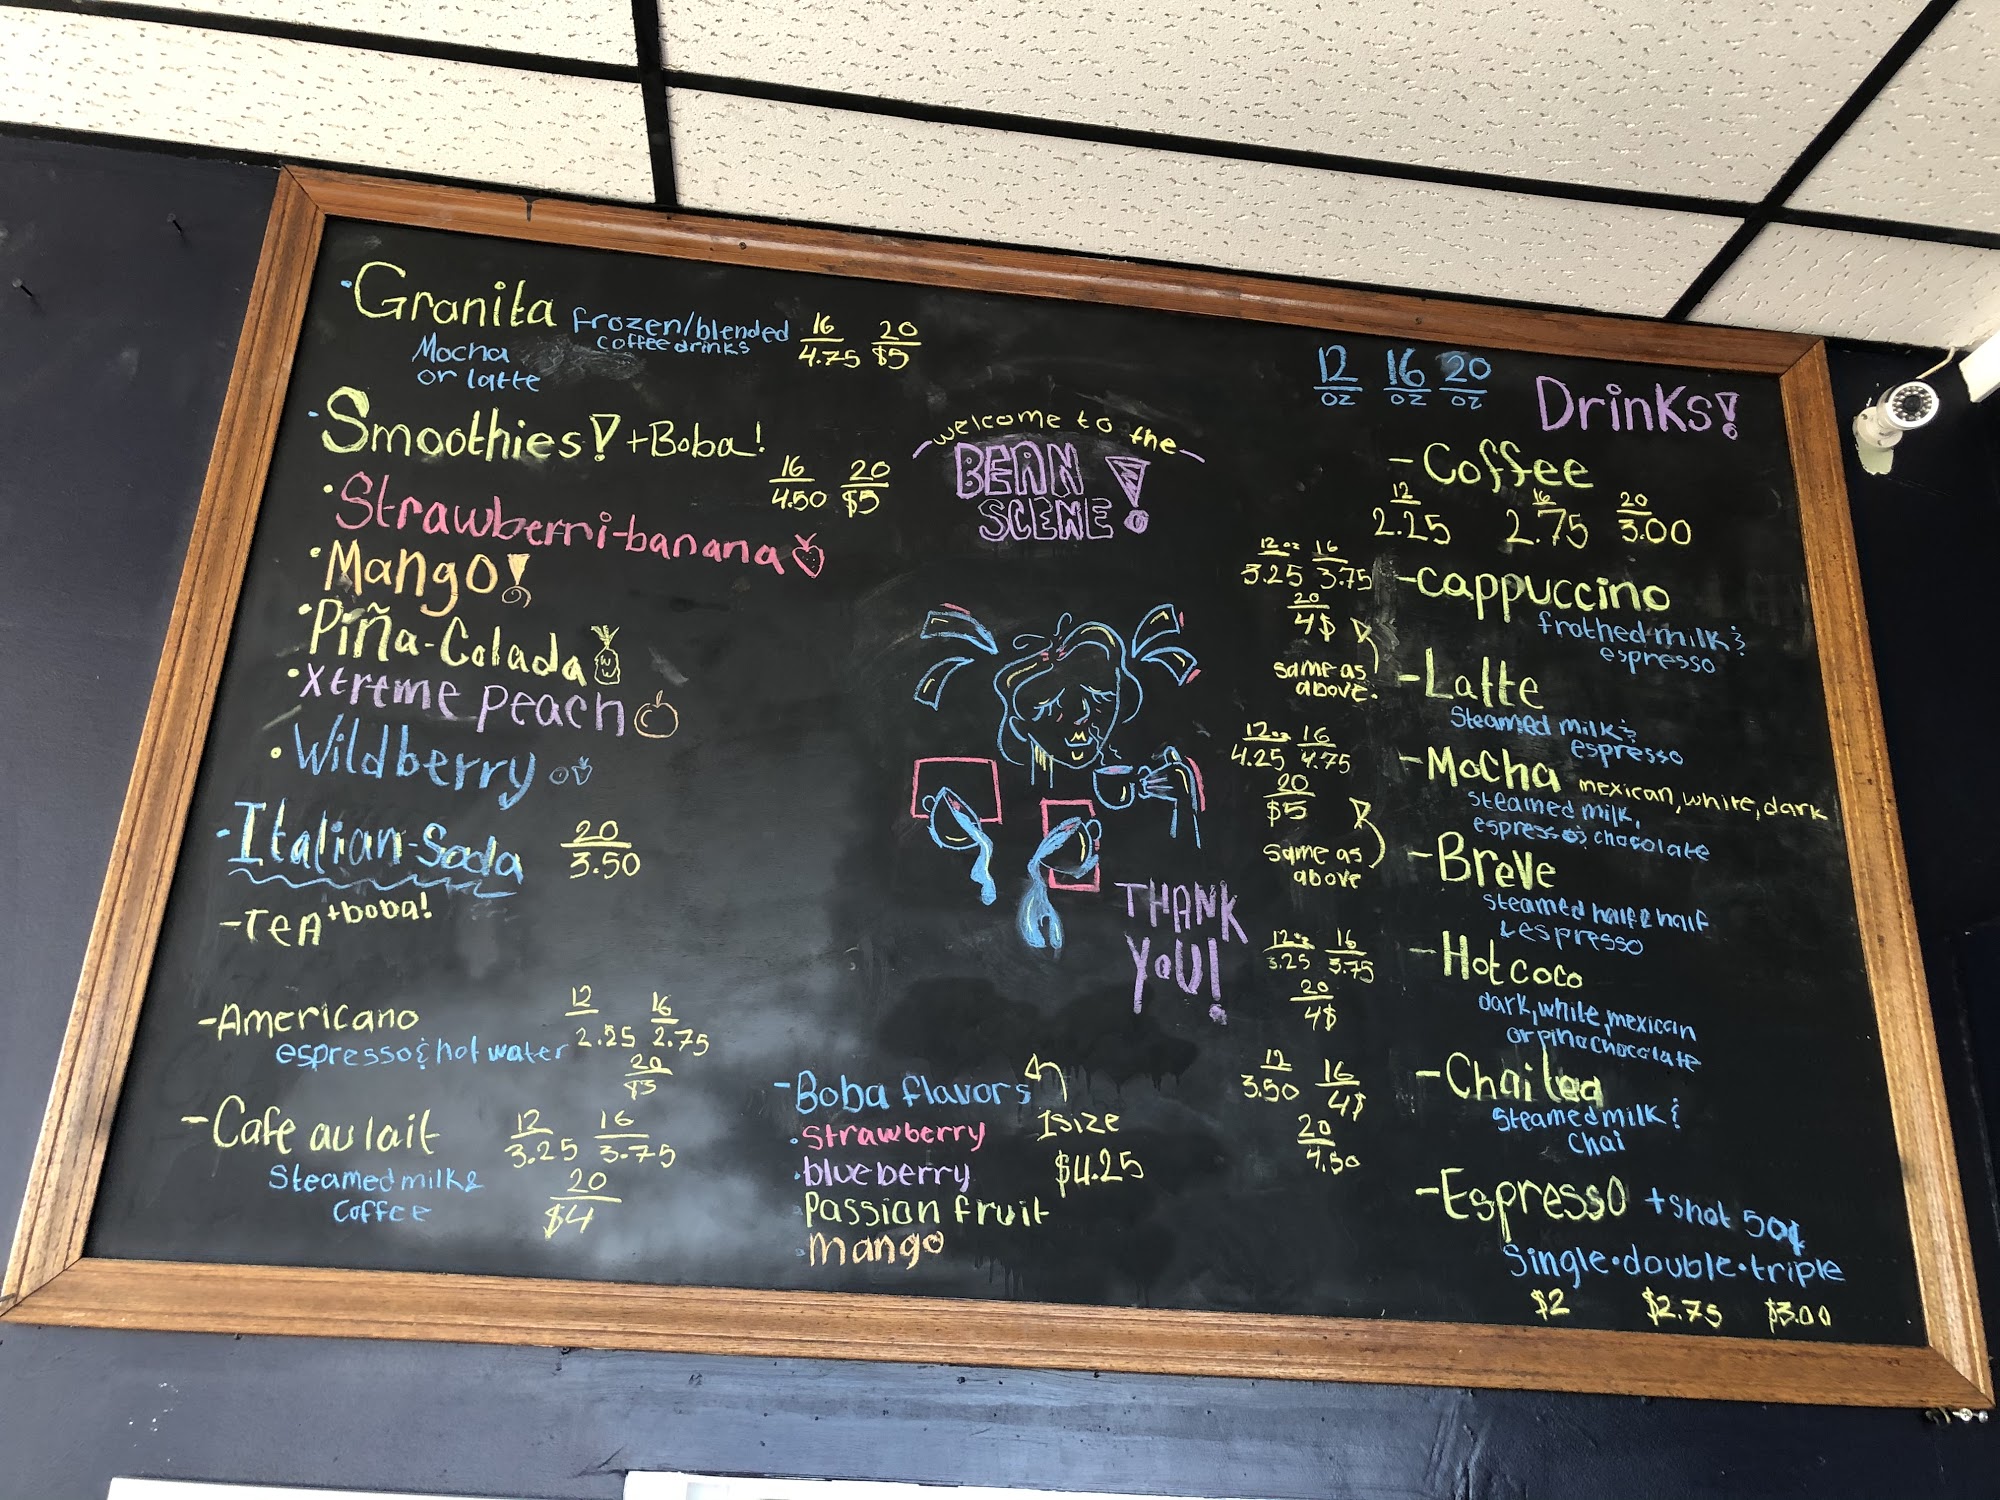 Granita frozen/blended 16 20
coffee drinks 4.75 $5
Mocha
or latte
Smoothies! +Boba!
16 20
4.50 $5
Strawberri-banana
Mango!
Piña-Colada
Xtreme peach
Wildberry
Italian-Soda 20
3.50
-Tea +boba!
-Americano 12 16
espresso & hot water 2.25 2.75
20
$3
-Cafe au lait 12 16
3.25 3.75
Steamed milk & 20
coffee $4
welcome to the
BEAN
SCENE!
THANK
YOU!
-Boba flavors
strawberry 1 size
blueberry $4.25
Passion fruit
mango
12 16 20
oz oz oz
Drinks!
-Coffee
12 16 20
2.25 2.75 3.00
12oz 16
3.25 3.75
20
4$
-cappuccino
frothed milk &
espresso
same as
above.
-Latte
Steamed milk &
espresso
12oz 16
4.25 4.75
20
$5
-Mocha mexican, white, dark
steamed milk,
espresso & chocolate
same as
above
-Breve
steamed half & half
& espresso
12oz 16
3.25 3.75
20
4$
-Hot coco
dark, white, mexican
or pina chocolate
12 16
3.50 4$
20
4.50
-Chai tea
steamed milk &
chai
-Espresso +shot 50¢
Single•double•triple
$2 $2.75 $3.00